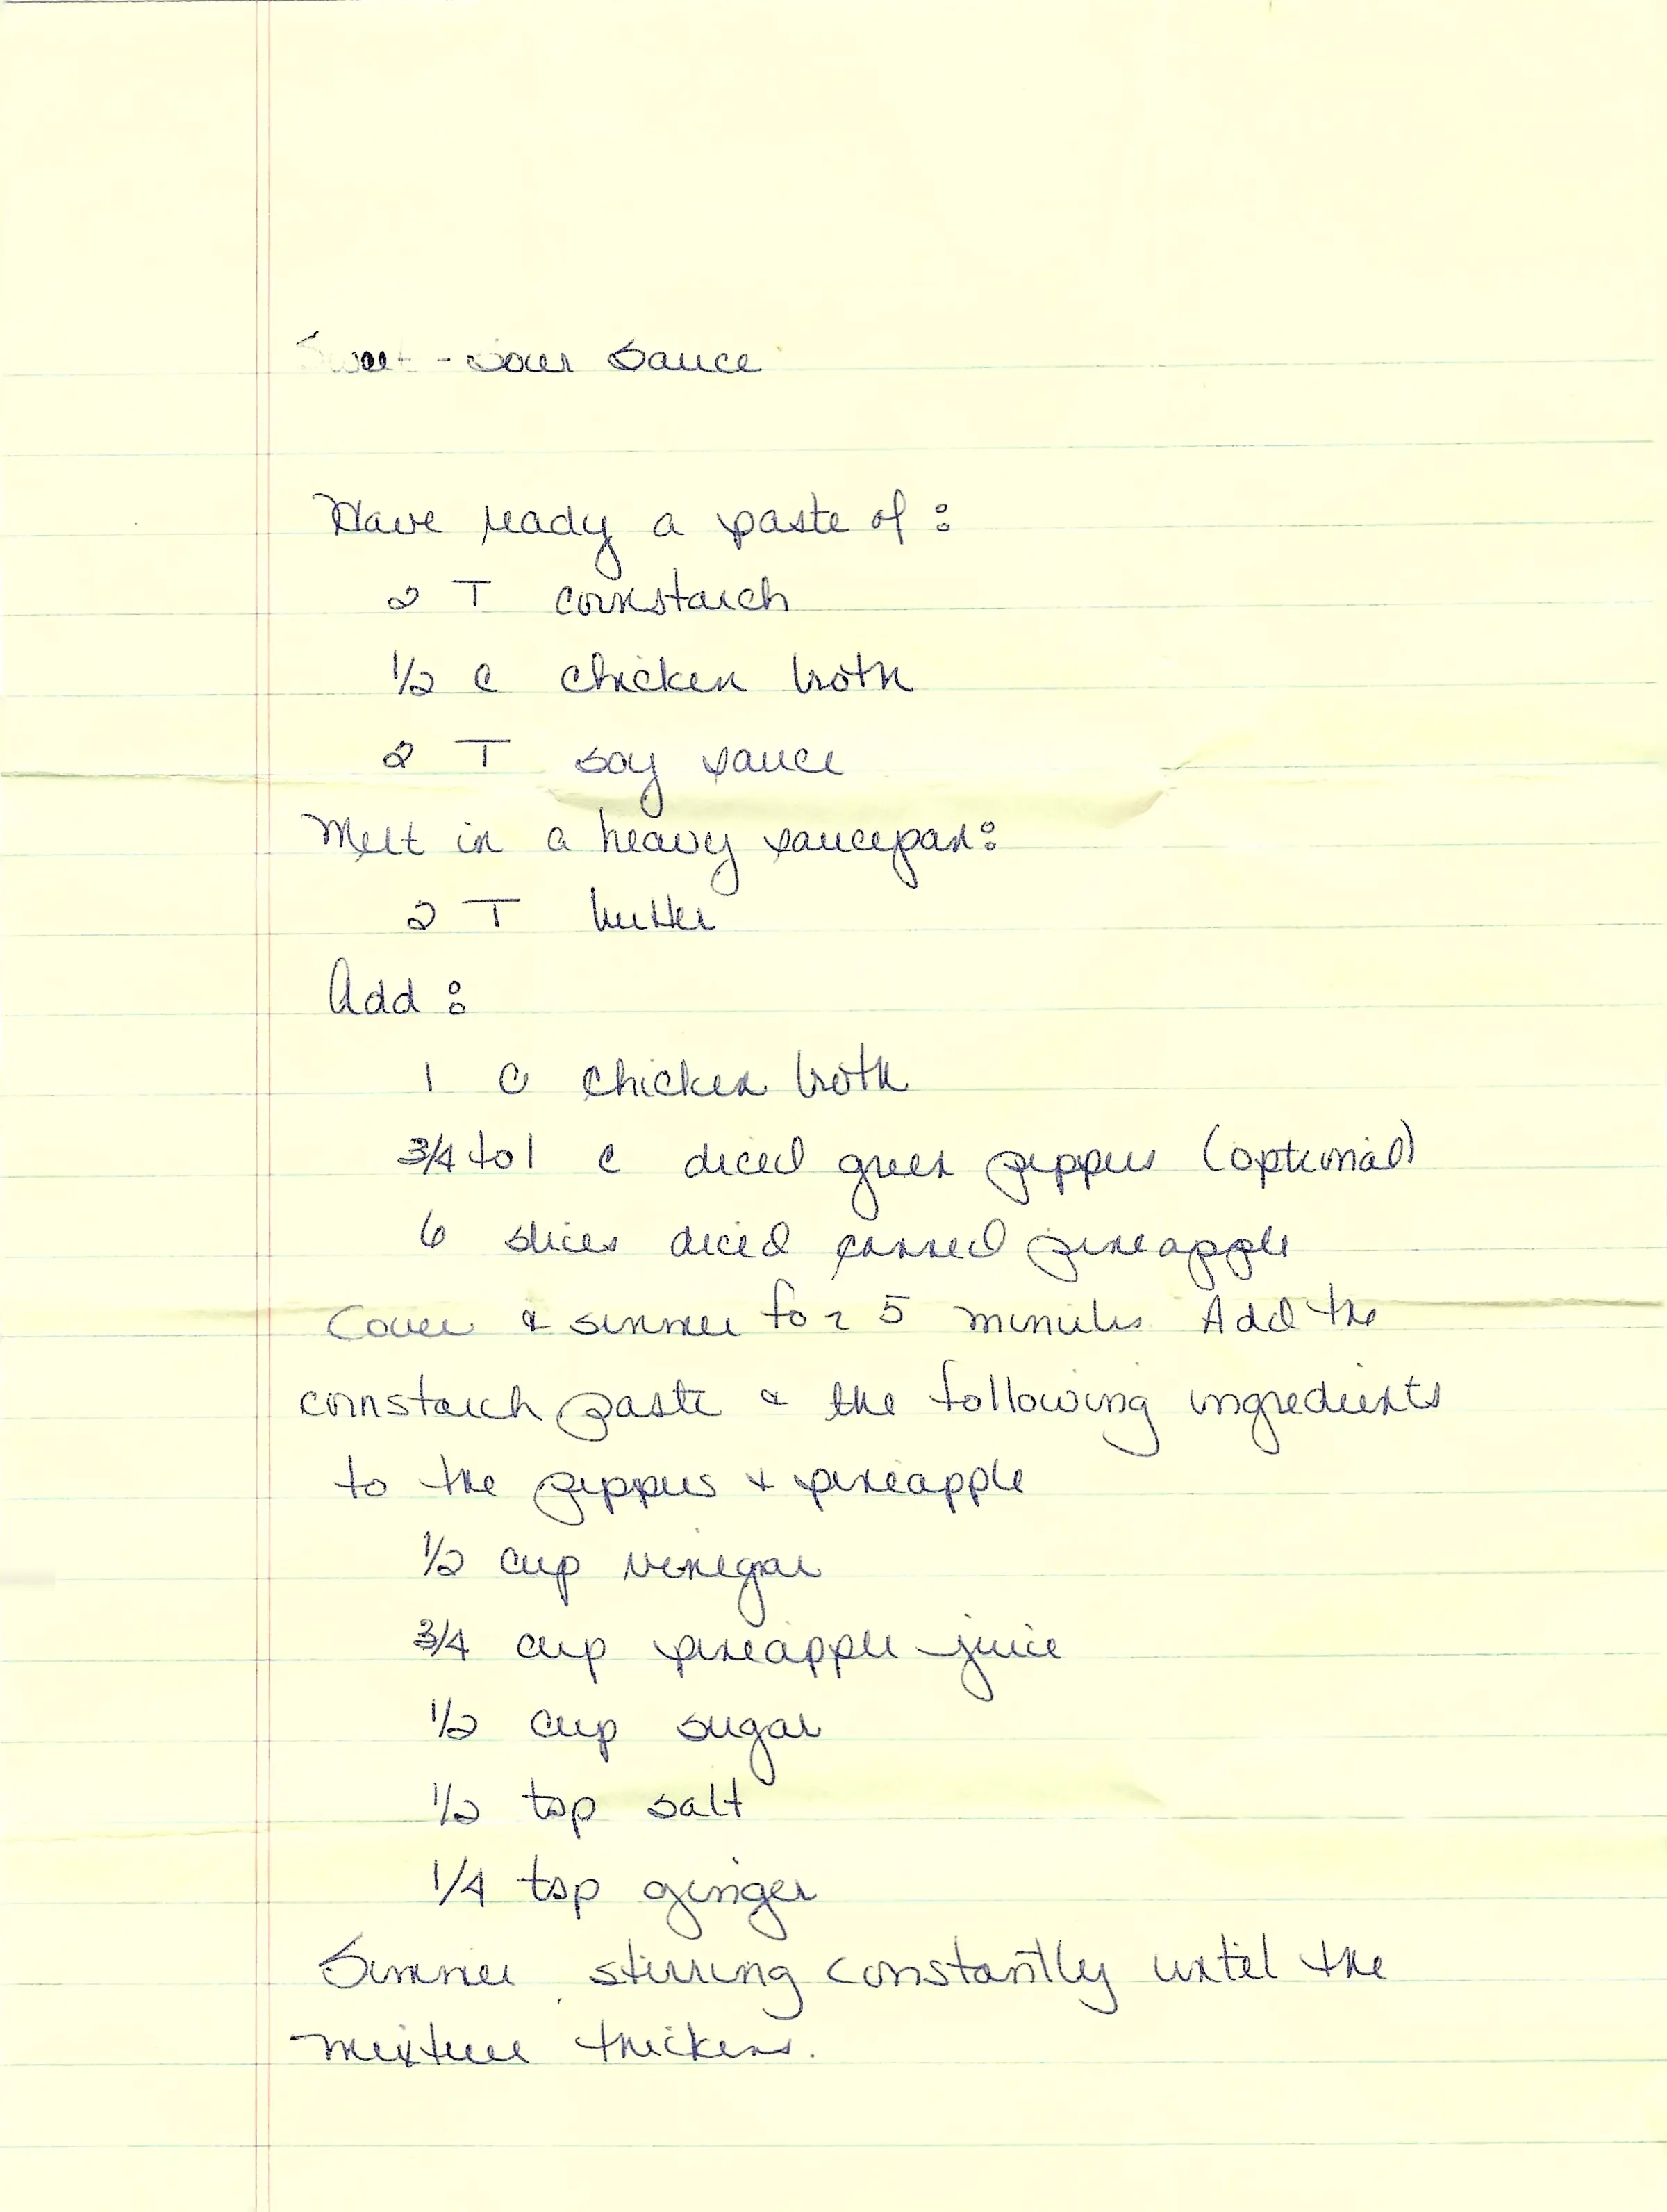 Sweet - Sour Sauce
Have ready a paste of :
2 T cornstarch
1/2 c chicken broth
2 T soy sauce
Melt in a heavy saucepan:
2 T butter
Add :
1 C chicken broth
3/4 to 1 c diced green peppers (optional)
6 slices diced canned pineapple
Cover & simmer for 5 minutes Add the
cornstarch paste & the following ingredients
to the peppers & pineapple
1/2 cup vinegar
3/4 cup pineapple juice
1/2 cup sugar
1/2 tsp salt
1/4 tsp ginger
Simmer stirring constantly until the
mixture thickens.